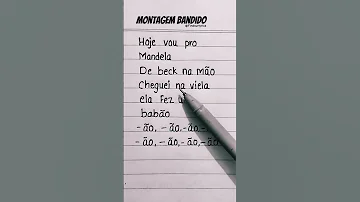 MONTAGEM BANDIDO
Hoje vou pro
Mandela
De beck na mão
Cheguei na viela
ela fez
babão
-ão, -ão, -ão, -
-ão, -ão, -ão, -ão